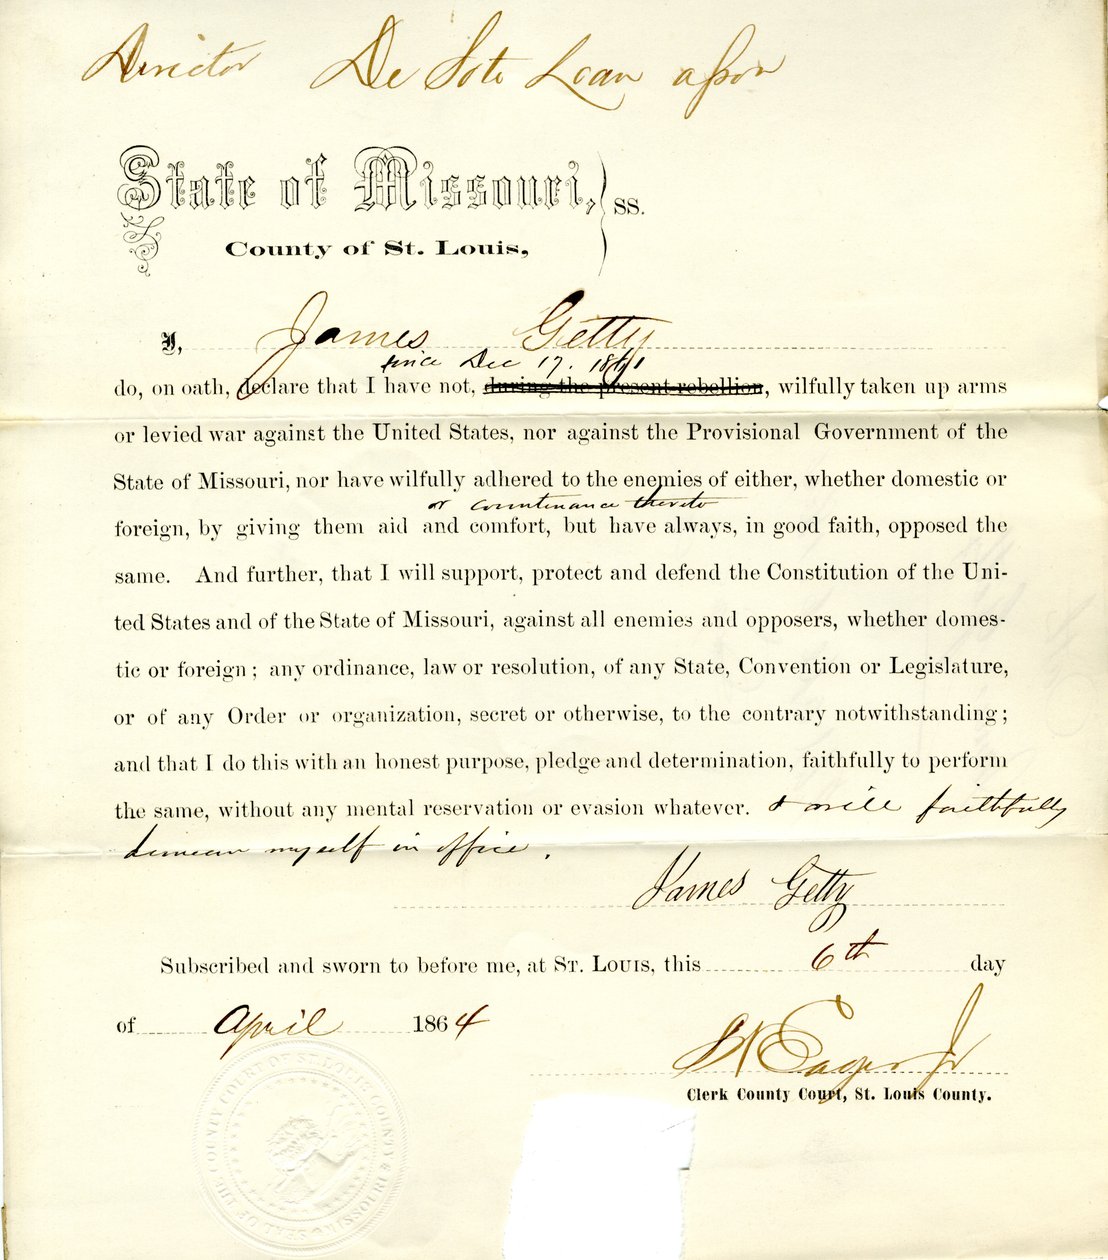 Director De Soto Loan assn
State of Missouri, } SS.
County of St. Louis,
I, James Getty
since Dec 17. 1861
do, on oath, declare that I have not, during the present rebellion, wilfully taken up arms
or levied war against the United States, nor against the Provisional Government of the
State of Missouri, nor have wilfully adhered to the enemies of either, whether domestic or
or countenance thereto
foreign, by giving them aid and comfort, but have always, in good faith, opposed the
same. And further, that I will support, protect and defend the Constitution of the Uni-
ted States and of the State of Missouri, against all enemies and opposers, whether domes-
tic or foreign; any ordinance, law or resolution, of any State, Convention or Legislature,
or of any Order or organization, secret or otherwise, to the contrary notwithstanding;
and that I do this with an honest purpose, pledge and determination, faithfully to perform
the same, without any mental reservation or evasion whatever. & will faithfully
demean myself in office.
James Getty
Subscribed and sworn to before me, at St. Louis, this 6th day
of April 1864
Eager Jr
Clerk County Court, St. Louis County.
SEAL OF THE COUNTY COURT OF ST. LOUIS COUNTY MISSOURI